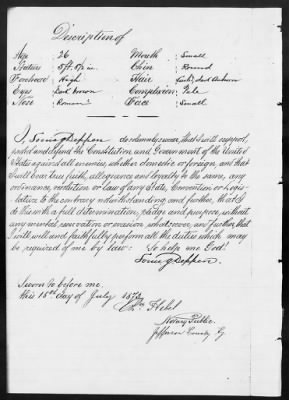 Description of
Age 26 Mouth Small
Stature 5 ft. in Chin Round
Forehead High Hair dark Auburn
Eyes Dark brown Complexion Pale
Nose Roman Face Small
I, Deppen do solemnly swear, that I will support,
protect and defend the Constitution, and Government of the United
States against all enemies, whether domestic or foreign, and that
I will bear true faith, allegiance and loyalty to the same, any
ordinance, resolution or law of any State, Convention or Legis-
lature to the contrary notwithstanding and further, that I
do this with a full determination, pledge and purpose, without
any mental reservation or evasion whatsoever, and further, that
I will well and faithfully perform all the duties which may
be required of me by law: So help me God!
Deppen.
Sworn to before me,
this 15th day of July
Notary Public
Jefferson County Ky